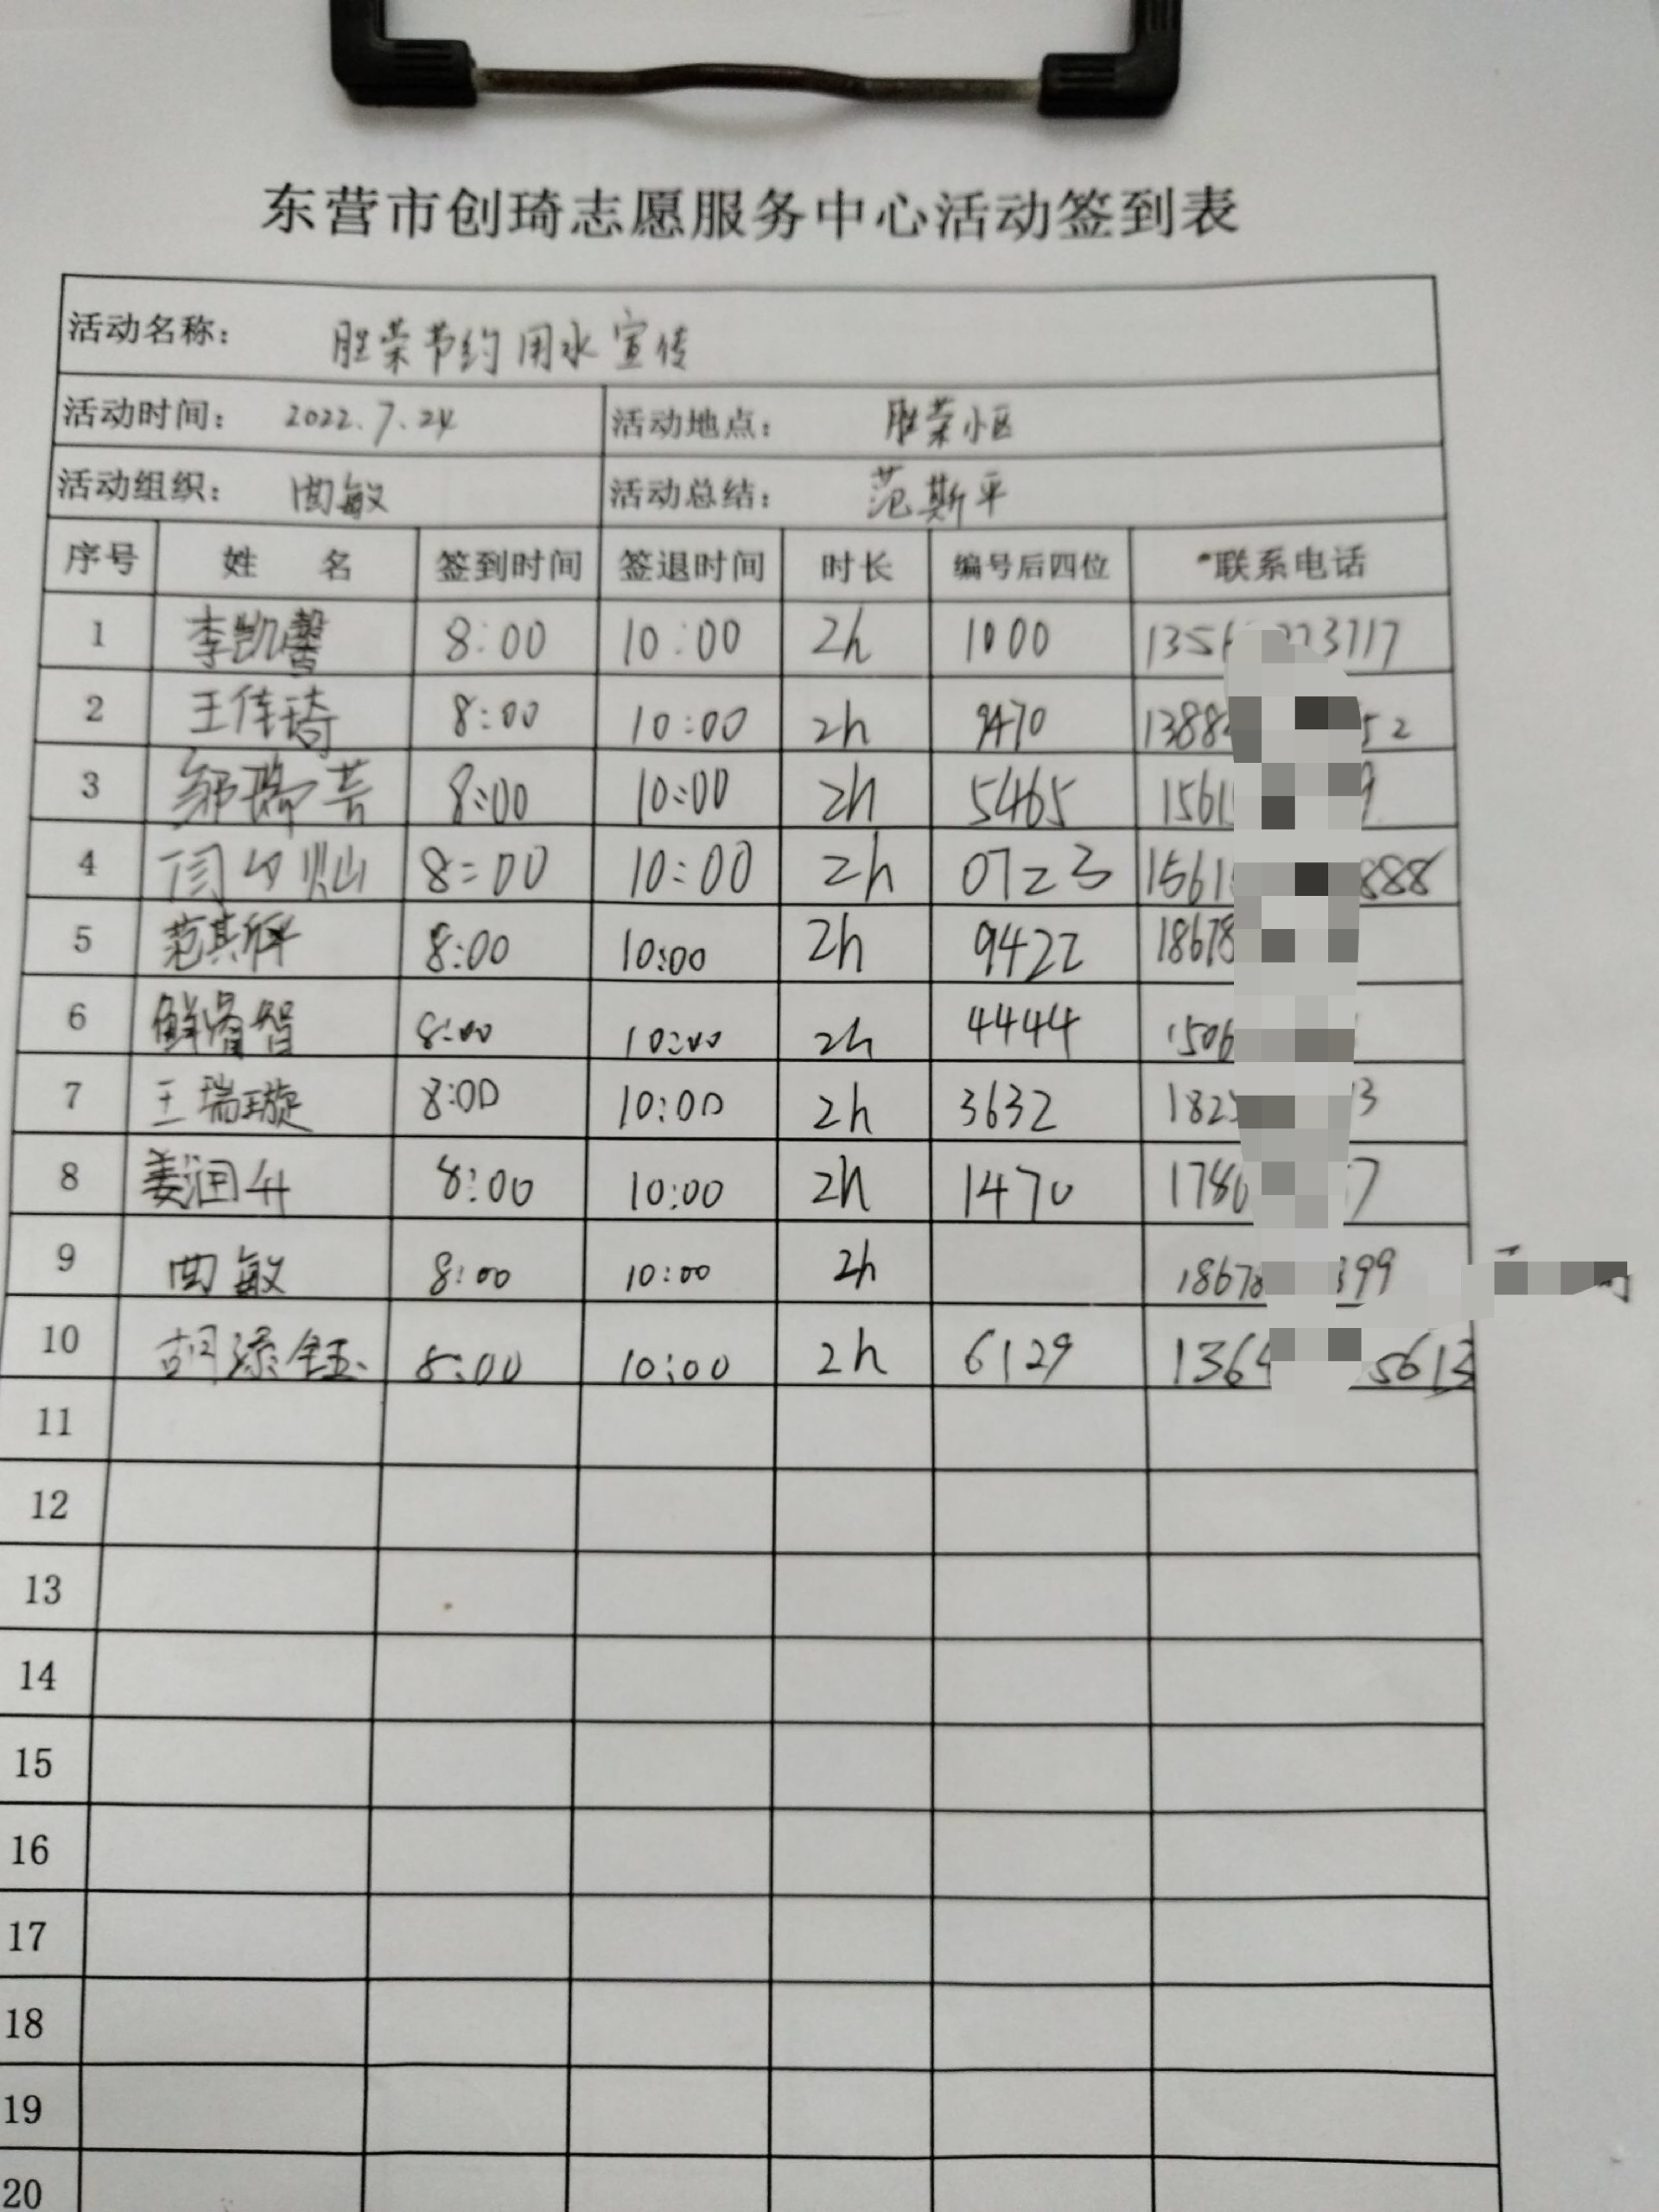 东营市创琦志愿服务中心活动签到表
活动名称： 胜荣节约用水宣传
活动时间： 2022.7.24 活动地点： 胜荣小区
活动组织： 曲敏 活动总结： 范斯平
序号 姓 名 签到时间 签退时间 时长 编号后四位 联系电话
1 李凯馨 8:00 10:00 2h 1000 1356 3717
2 王佳琦 8:00 10:00 2h 9470 1388 52
3 8:00 10:00 2h 5465 1561 9
4 8:00 10:00 2h 0723 1561 888
5 8:00 10:00 2h 9422 18678
6 8:00 10:00 2h 4444 1506
7 王瑞璇 8:00 10:00 2h 3632 182 3
8 姜润升 8:00 10:00 2h 1470 178 7
9 曲敏 8:00 10:00 2h 18678 399
10 胡添钰 8:00 10:00 2h 6129 1364 5613
11
12
13
14
15
16
17
18
19
20